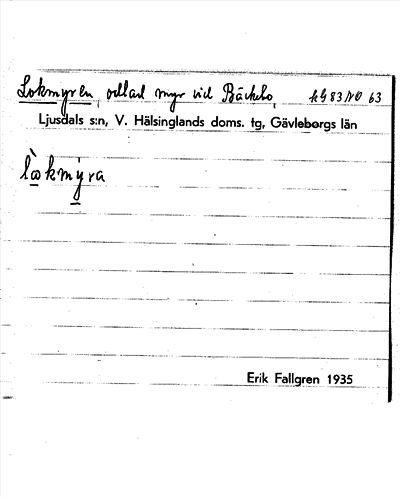 Lokmyren, odlad myr vid Bäckebo, kg 83 NO 63
Ljusdals s:n, V. Hälsinglands doms. tg, Gävleborgs län
Erik Fallgren 1935